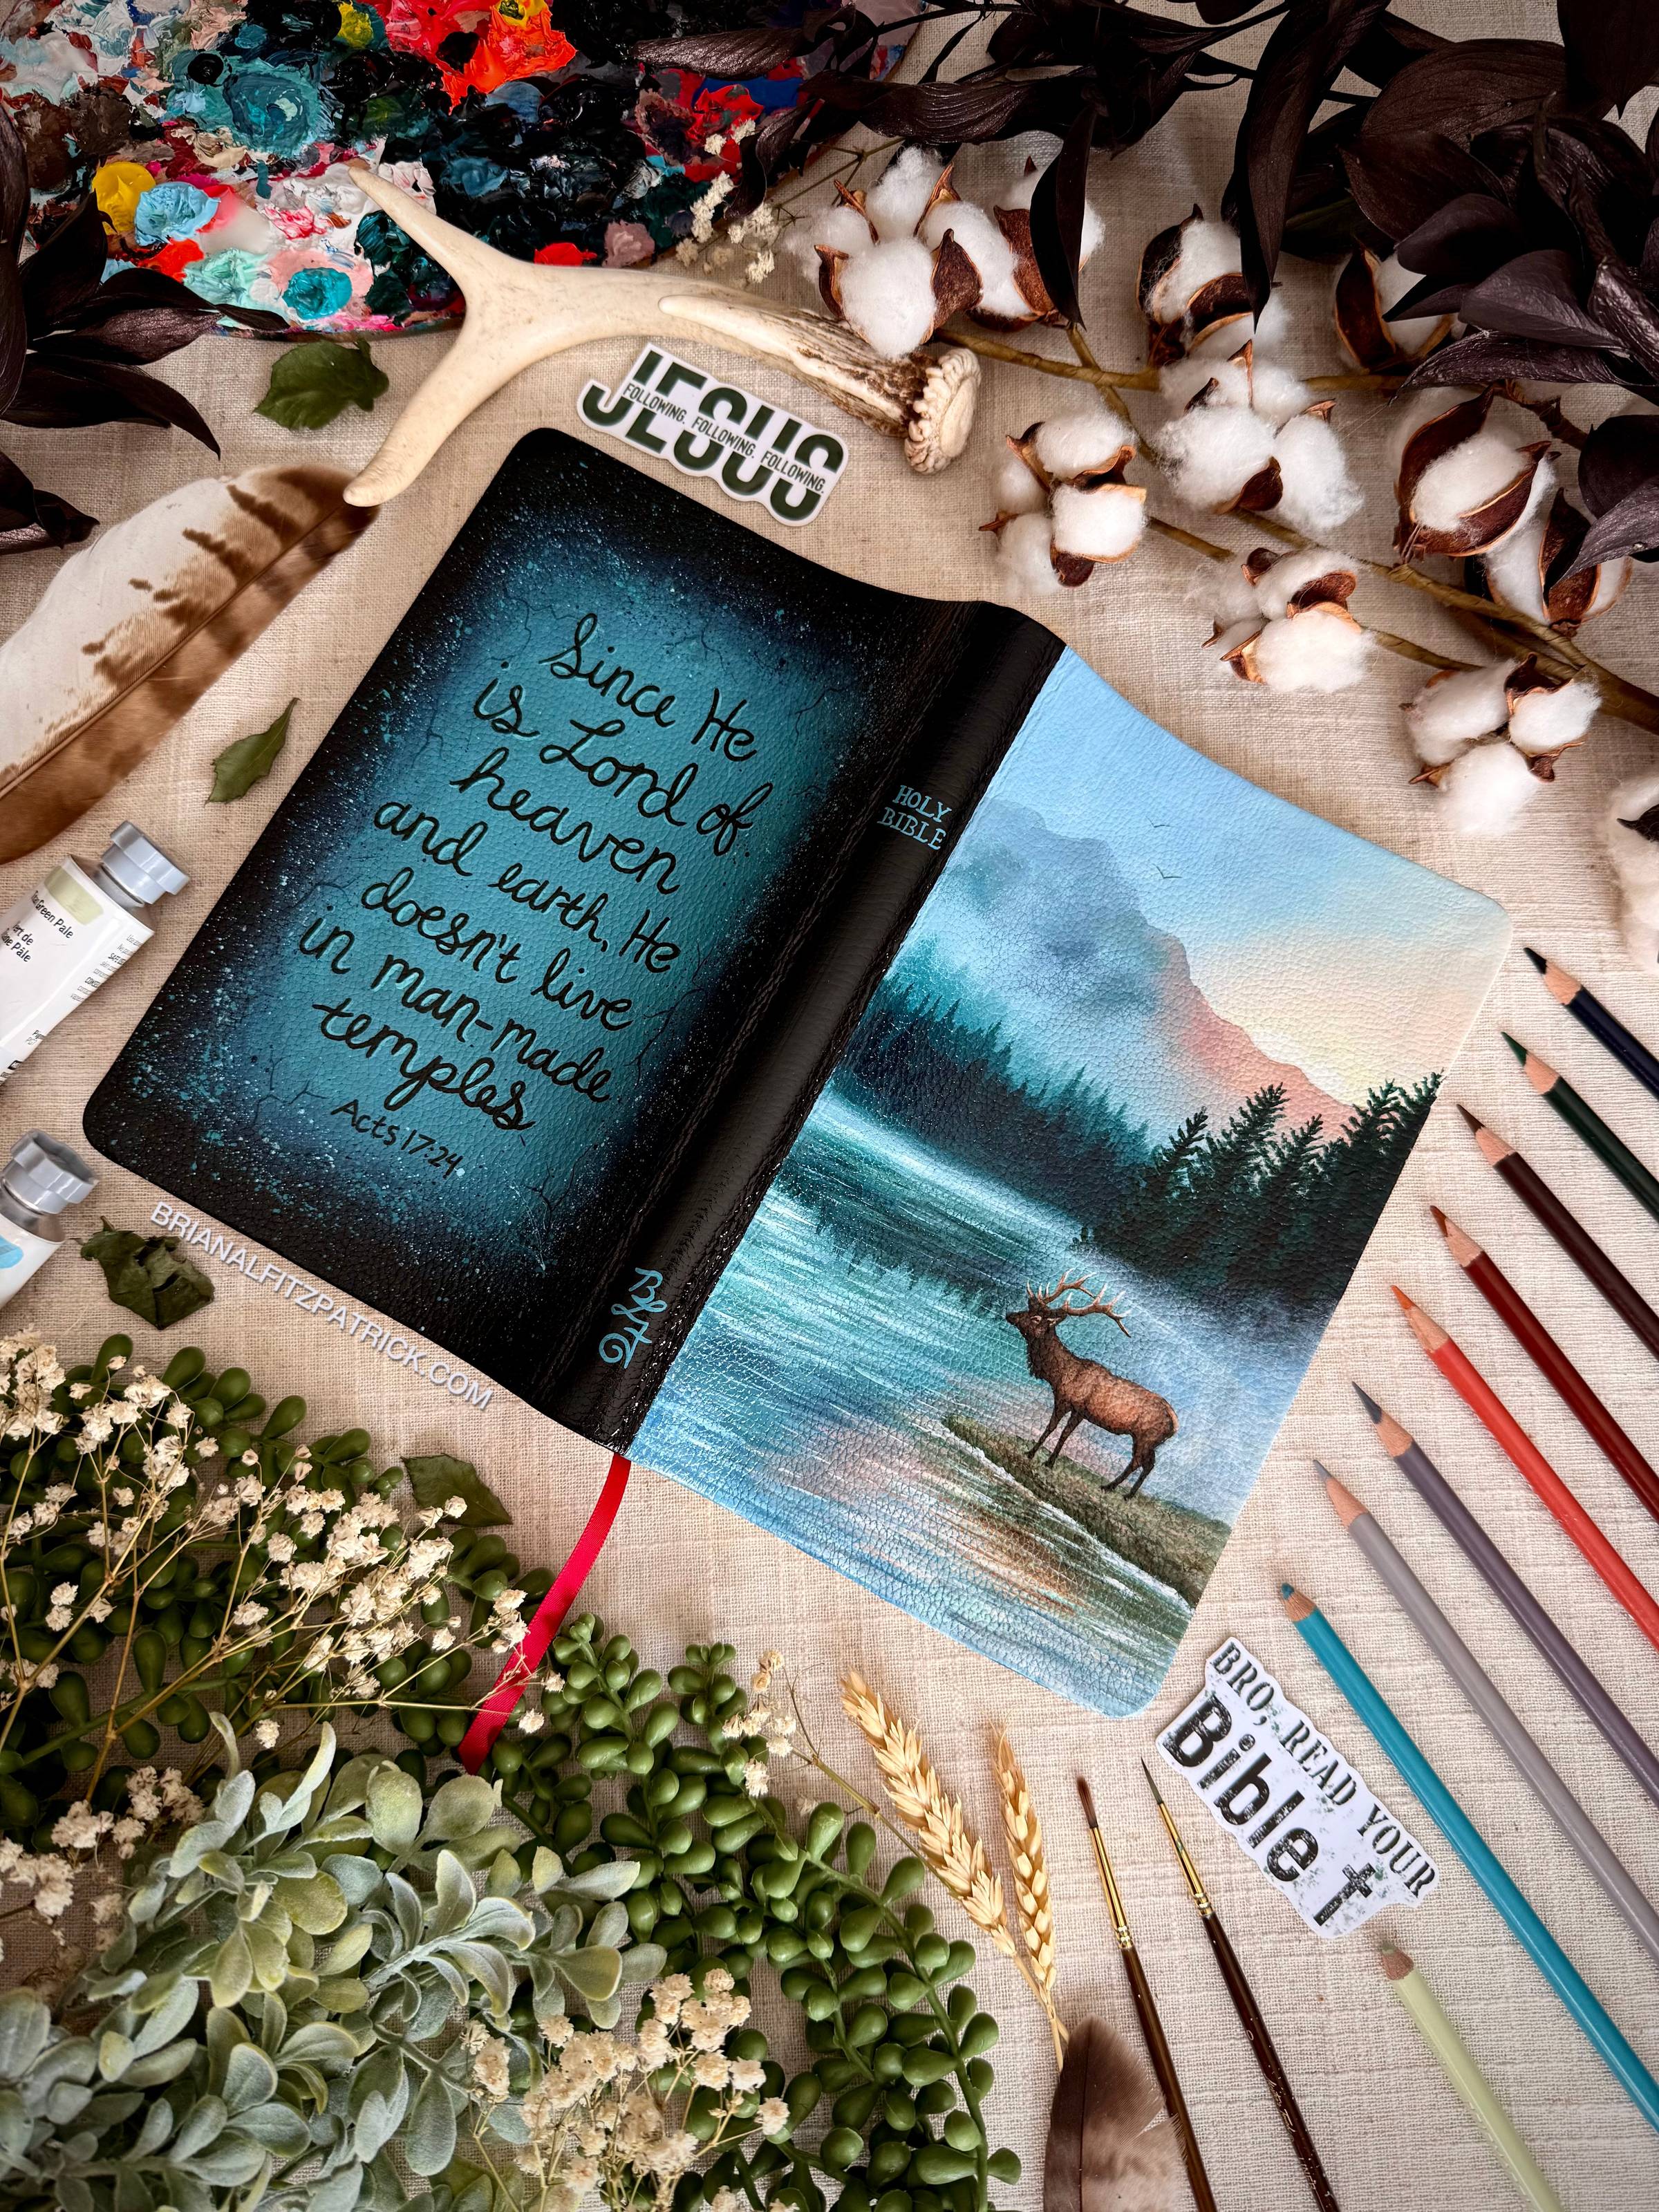 JESUS
FOLLOWING. FOLLOWING. FOLLOWING.
Since He
is Lord of
heaven
and earth, He
doesn't live
in man-made
temples
Acts 17:24
HOLY
BIBLE
BRIANALFITZPATRICK.COM
Green Pale
BRO, READ YOUR
Bible